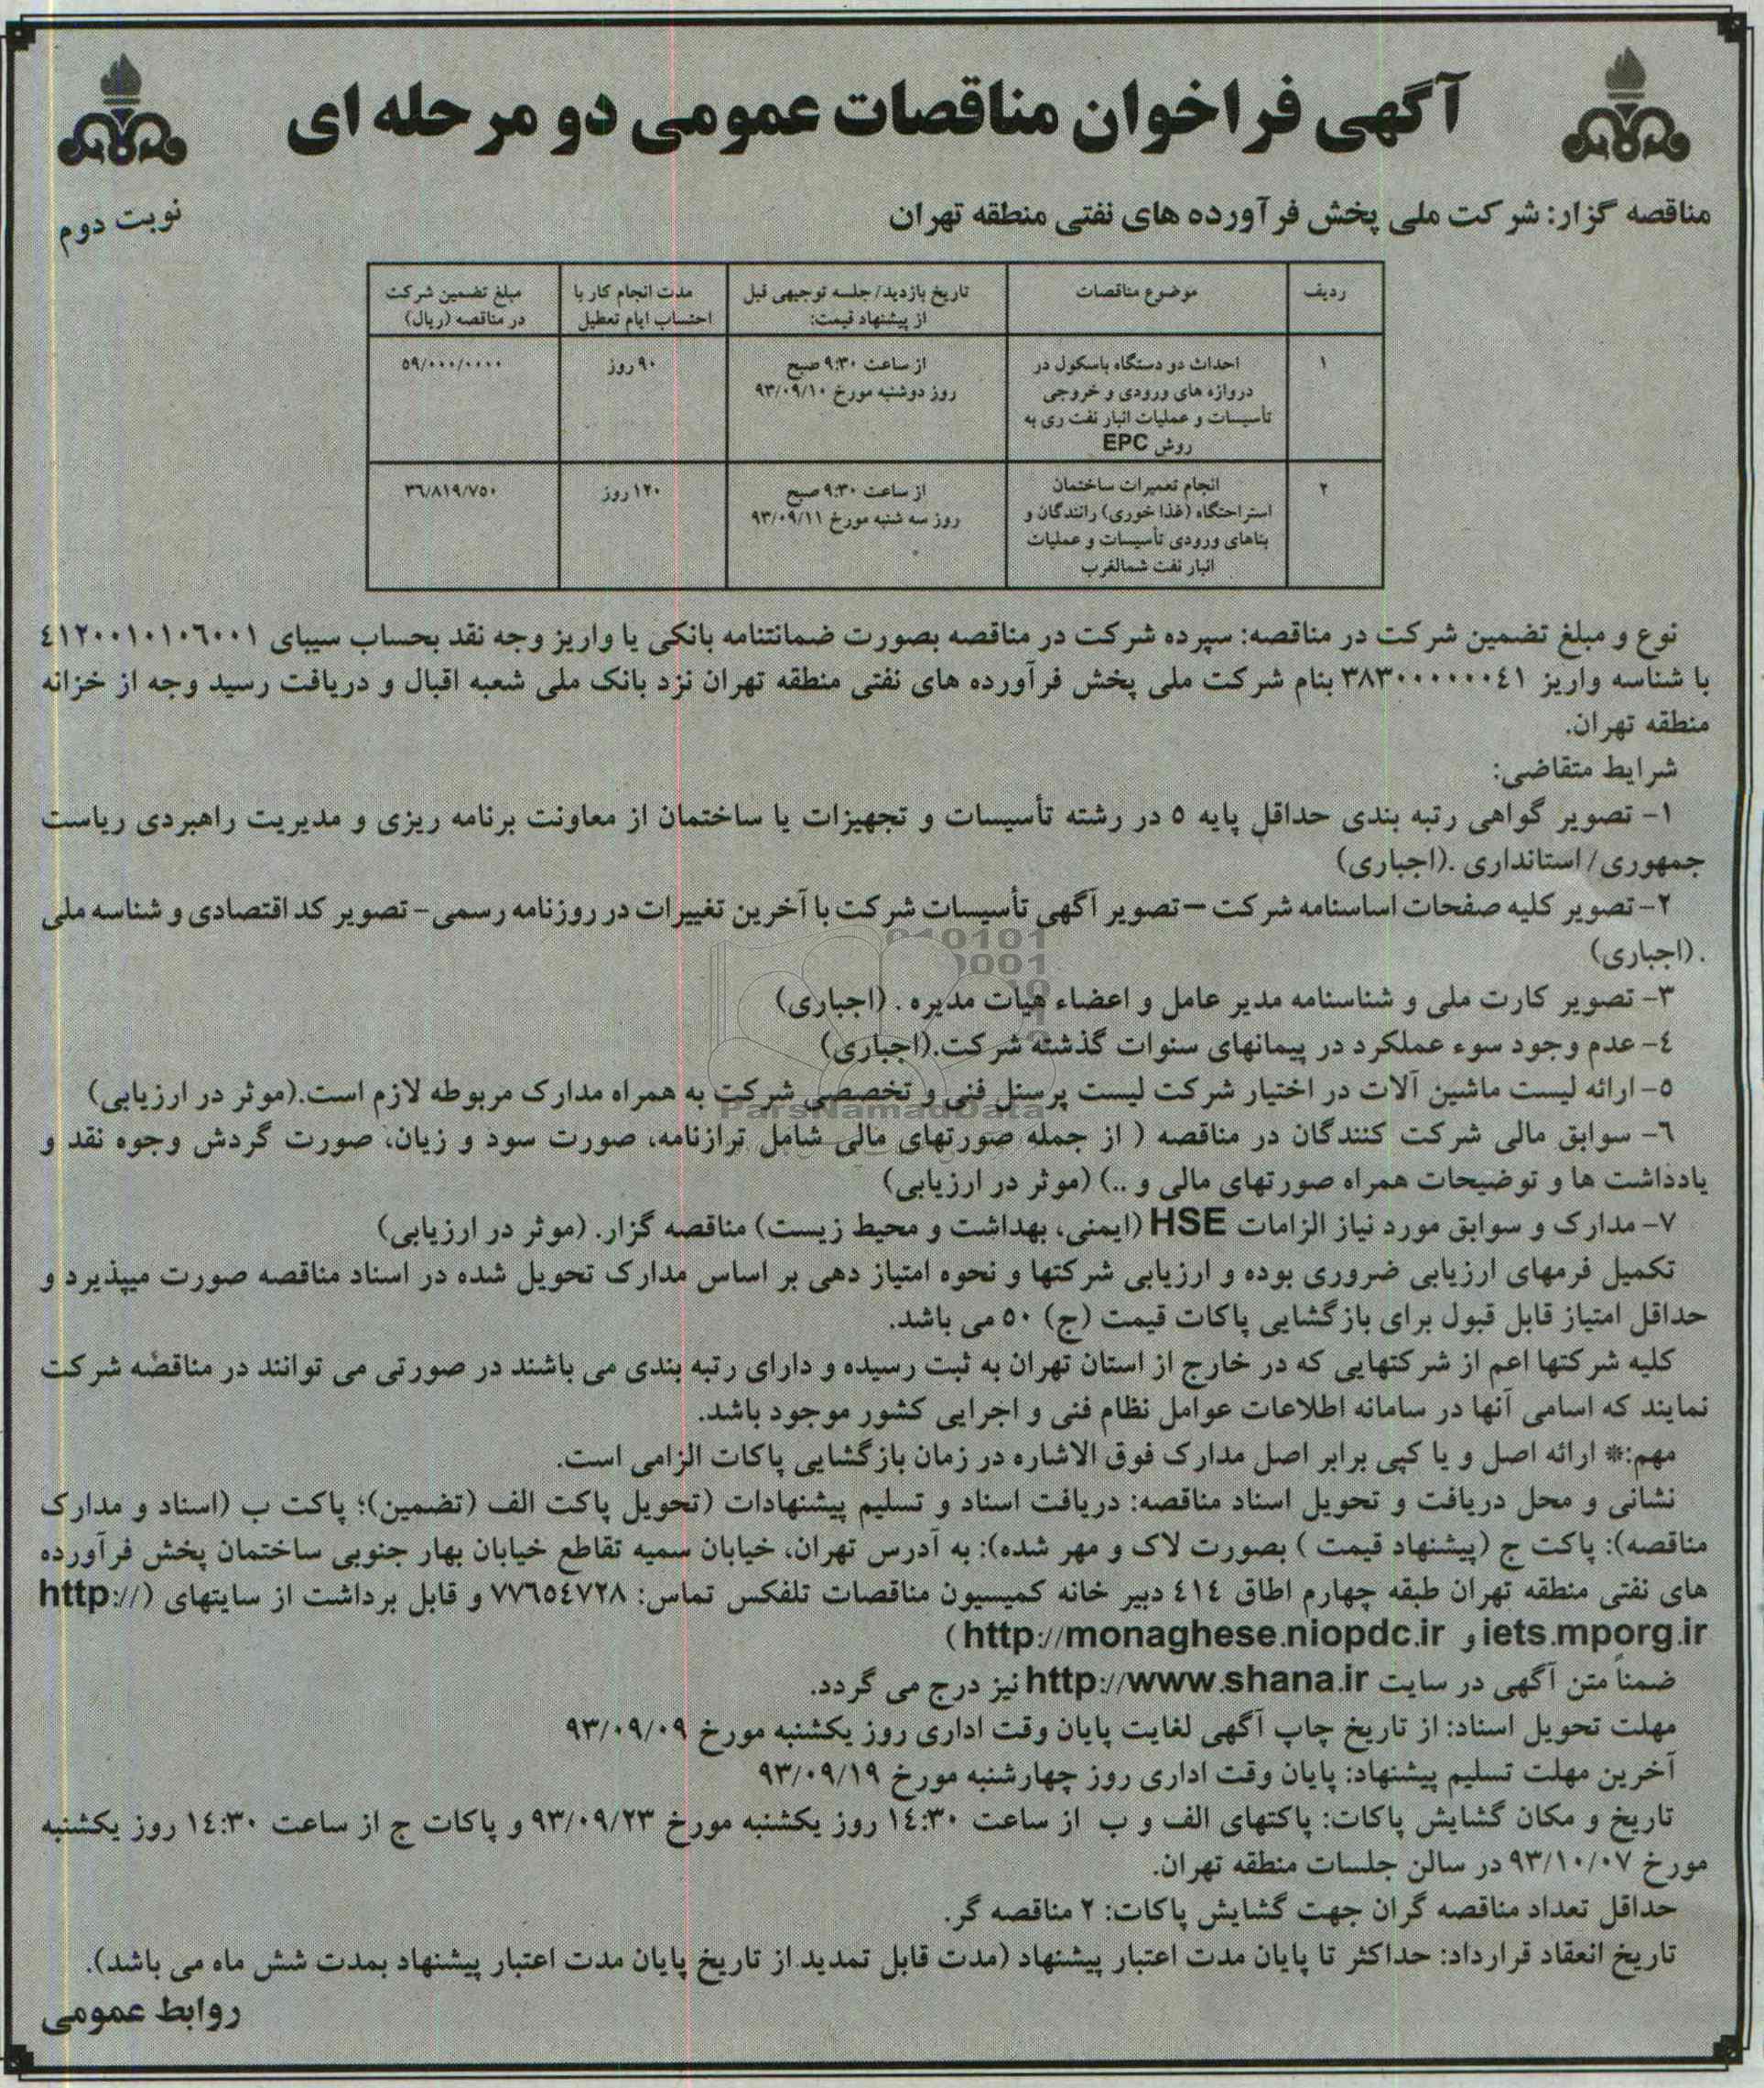 آگهی فراخوان مناقصات عمومی دو مرحله ای
مناقصه گزار: شرکت ملی پخش فرآورده های نفتی منطقه تهران
نوبت دوم
ردیف
موضوع مناقصات
تاریخ بازدید/ جلسه توجیهی قبل
از پیشنهاد قیمت:
مدت انجام کار با
احتساب ایام تعطیل
مبلغ تضمین شرکت
در مناقصه (ریال)
۱
احداث دو دستگاه باسکول در
دروازه های ورودی و خروجی
تأسیسات و عملیات انبار نفت ری به
روش EPC
از ساعت ۹:۳۰ صبح
روز دوشنبه مورخ ۹۳/۰۹/۱۰
۹۰ روز
۵۹/۰۰۰/۰۰۰۰
۲
انجام تعمیرات ساختمان
استراحتگاه (غذا خوری) رانندگان و
بناهای ورودی تأسیسات و عملیات
انبار نفت شمالغرب
از ساعت ۹:۳۰ صبح
روز سه شنبه مورخ ۹۳/۰۹/۱۱
۱۲۰ روز
۳۶/۸۱۹/۷۵۰
نوع و مبلغ تضمین شرکت در مناقصه: سپرده شرکت در مناقصه بصورت ضمانتنامه بانکی یا واریز وجه نقد بحساب سیبای ٤۱۲۰۰۱۰۱۰٦۰۰۱
با شناسه واریز ۳۸۳۰۰۰۰۰۰۰٤۱ بنام شرکت ملی پخش فرآورده های نفتی منطقه تهران نزد بانک ملی شعبه اقبال و دریافت رسید وجه از خزانه
منطقه تهران.
شرایط متقاضی:
۱- تصویر گواهی رتبه بندی حداقل پایه ۵ در رشته تأسیسات و تجهیزات یا ساختمان از معاونت برنامه ریزی و مدیریت راهبردی ریاست
جمهوری/ استانداری .(اجباری)
۲- تصویر کلیه صفحات اساسنامه شرکت – تصویر آگهی تأسیسات شرکت با آخرین تغییرات در روزنامه رسمی- تصویر کد اقتصادی و شناسه ملی
.(اجباری)
۳- تصویر کارت ملی و شناسنامه مدیر عامل و اعضاء هیات مدیره . (اجباری)
٤- عدم وجود سوء عملکرد در پیمانهای سنوات گذشته شرکت.(اجباری)
۵- ارائه لیست ماشین آلات در اختیار شرکت لیست پرسنل فنی و تخصصی شرکت به همراه مدارک مربوطه لازم است.(موثر در ارزیابی)
ParsNamadData
٦- سوابق مالی شرکت کنندگان در مناقصه ( از جمله صورتهای مالی شامل ترازنامه، صورت سود و زیان، صورت گردش وجوه نقد و
یادداشت ها و توضیحات همراه صورتهای مالی و ..) (موثر در ارزیابی)
۷- مدارک و سوابق مورد نیاز الزامات HSE (ایمنی، بهداشت و محیط زیست) مناقصه گزار. (موثر در ارزیابی)
تکمیل فرمهای ارزیابی ضروری بوده و ارزیابی شرکتها و نحوه امتیاز دهی بر اساس مدارک تحویل شده در اسناد مناقصه صورت میپذیرد و
حداقل امتیاز قابل قبول برای بازگشایی پاکات قیمت (ج) ۵۰ می باشد.
کلیه شرکتها اعم از شرکتهایی که در خارج از استان تهران به ثبت رسیده و دارای رتبه بندی می باشند در صورتی می توانند در مناقصه شرکت
نمایند که اسامی آنها در سامانه اطلاعات عوامل نظام فنی و اجرایی کشور موجود باشد.
مهم:* ارائه اصل و یا کپی برابر اصل مدارک فوق الاشاره در زمان بازگشایی پاکات الزامی است.
نشانی و محل دریافت و تحویل اسناد مناقصه: دریافت اسناد و تسلیم پیشنهادات (تحویل پاکت الف (تضمین)؛ پاکت ب (اسناد و مدارک
مناقصه): پاکت ج (پیشنهاد قیمت ) بصورت لاک و مهر شده): به آدرس تهران، خیابان سمیه تقاطع خیابان بهار جنوبی ساختمان پخش فرآورده
های نفتی منطقه تهران طبقه چهارم اطاق ٤۱٤ دبیر خانه کمیسیون مناقصات تلفکس تماس: ۷۷٦۵٤۷۲۸ و قابل برداشت از سایتهای (http://
iets.mporg.ir و http://monaghese.niopdc.ir)
ضمناً متن آگهی در سایت http://www.shana.ir نیز درج می گردد.
مهلت تحویل اسناد: از تاریخ چاپ آگهی لغایت پایان وقت اداری روز یکشنبه مورخ ۹۳/۰۹/۰۹
آخرین مهلت تسلیم پیشنهاد: پایان وقت اداری روز چهارشنبه مورخ ۹۳/۰۹/۱۹
تاریخ و مکان گشایش پاکات: پاکتهای الف و ب از ساعت ۱٤:۳۰ روز یکشنبه مورخ ۹۳/۰۹/۲۳ و پاکات ج از ساعت ۱٤:۳۰ روز یکشنبه
مورخ ۹۳/۱۰/۰۷ در سالن جلسات منطقه تهران.
حداقل تعداد مناقصه گران جهت گشایش پاکات: ۲ مناقصه گر.
تاریخ انعقاد قرارداد: حداکثر تا پایان مدت اعتبار پیشنهاد (مدت قابل تمدید از تاریخ پایان مدت اعتبار پیشنهاد بمدت شش ماه می باشد).
روابط عمومی